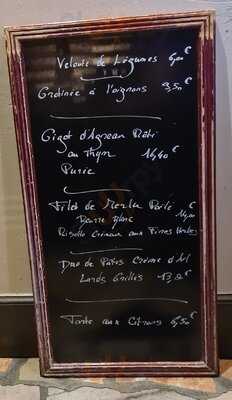 Velouté de Légumes 6,00 €
Gratinée à l'oignons 9,50 €
Gigot d'Agneau Rôti
au Thym 16,40 €
Purée
Filet de Merlu Poêlé €
Beurre Blanc 14,00
Risotto Crémeux aux Fines Herbes
Duo de Pâtes Crème d'Ail
Lards Grillés
Tarte aux Citrons 6,50 €